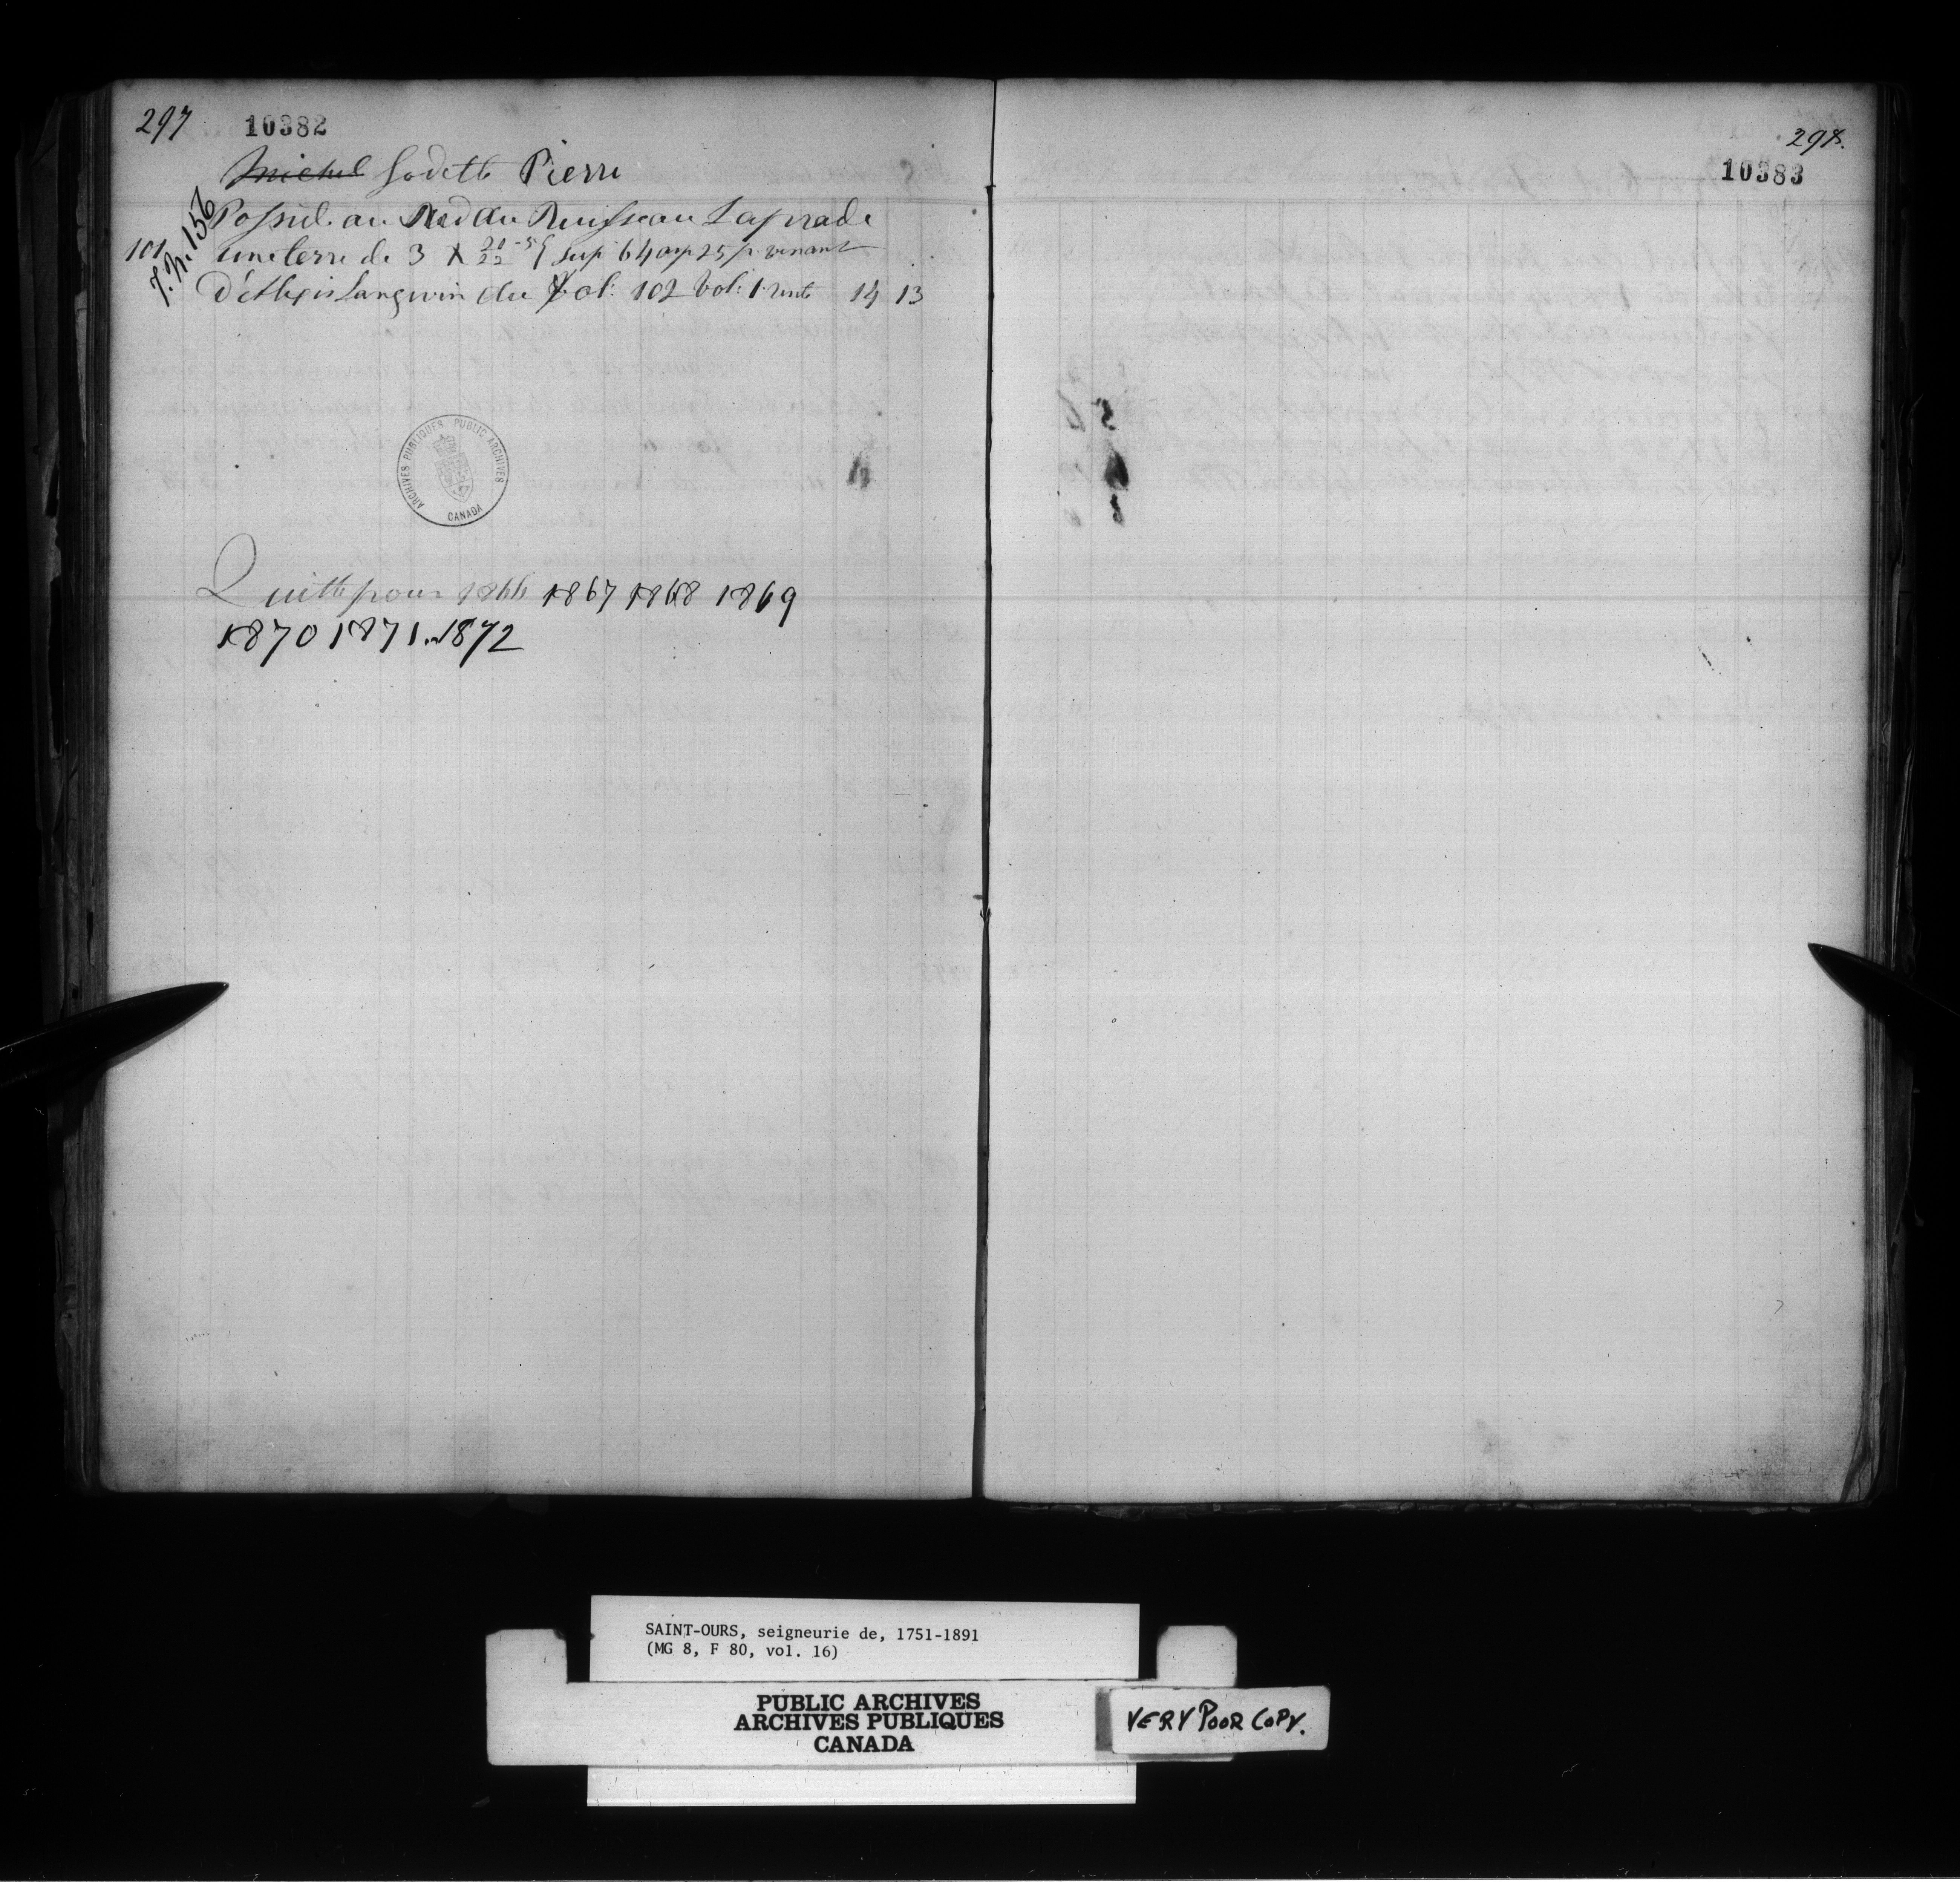 297 10382
Michel Godette Pierre
Possède au Nord du Ruisseau Laprade
101 J. N. 156 une terre de 3 X 21-5/22 Sup 64 arp 25 p. venant
D'Alexis Langevin du fol: 102 Vol: 1 rente 14 13
ARCHIVES PUBLIQUES PUBLIC ARCHIVES
CANADA
Quitte pour 1866 1867 1868 1869
1870 1871 1872
298.
10383
SAINT-OURS, seigneurie de, 1751-1891
(MG 8, F 80, vol. 16)
PUBLIC ARCHIVES
ARCHIVES PUBLIQUES
CANADA
VERY POOR COPY.